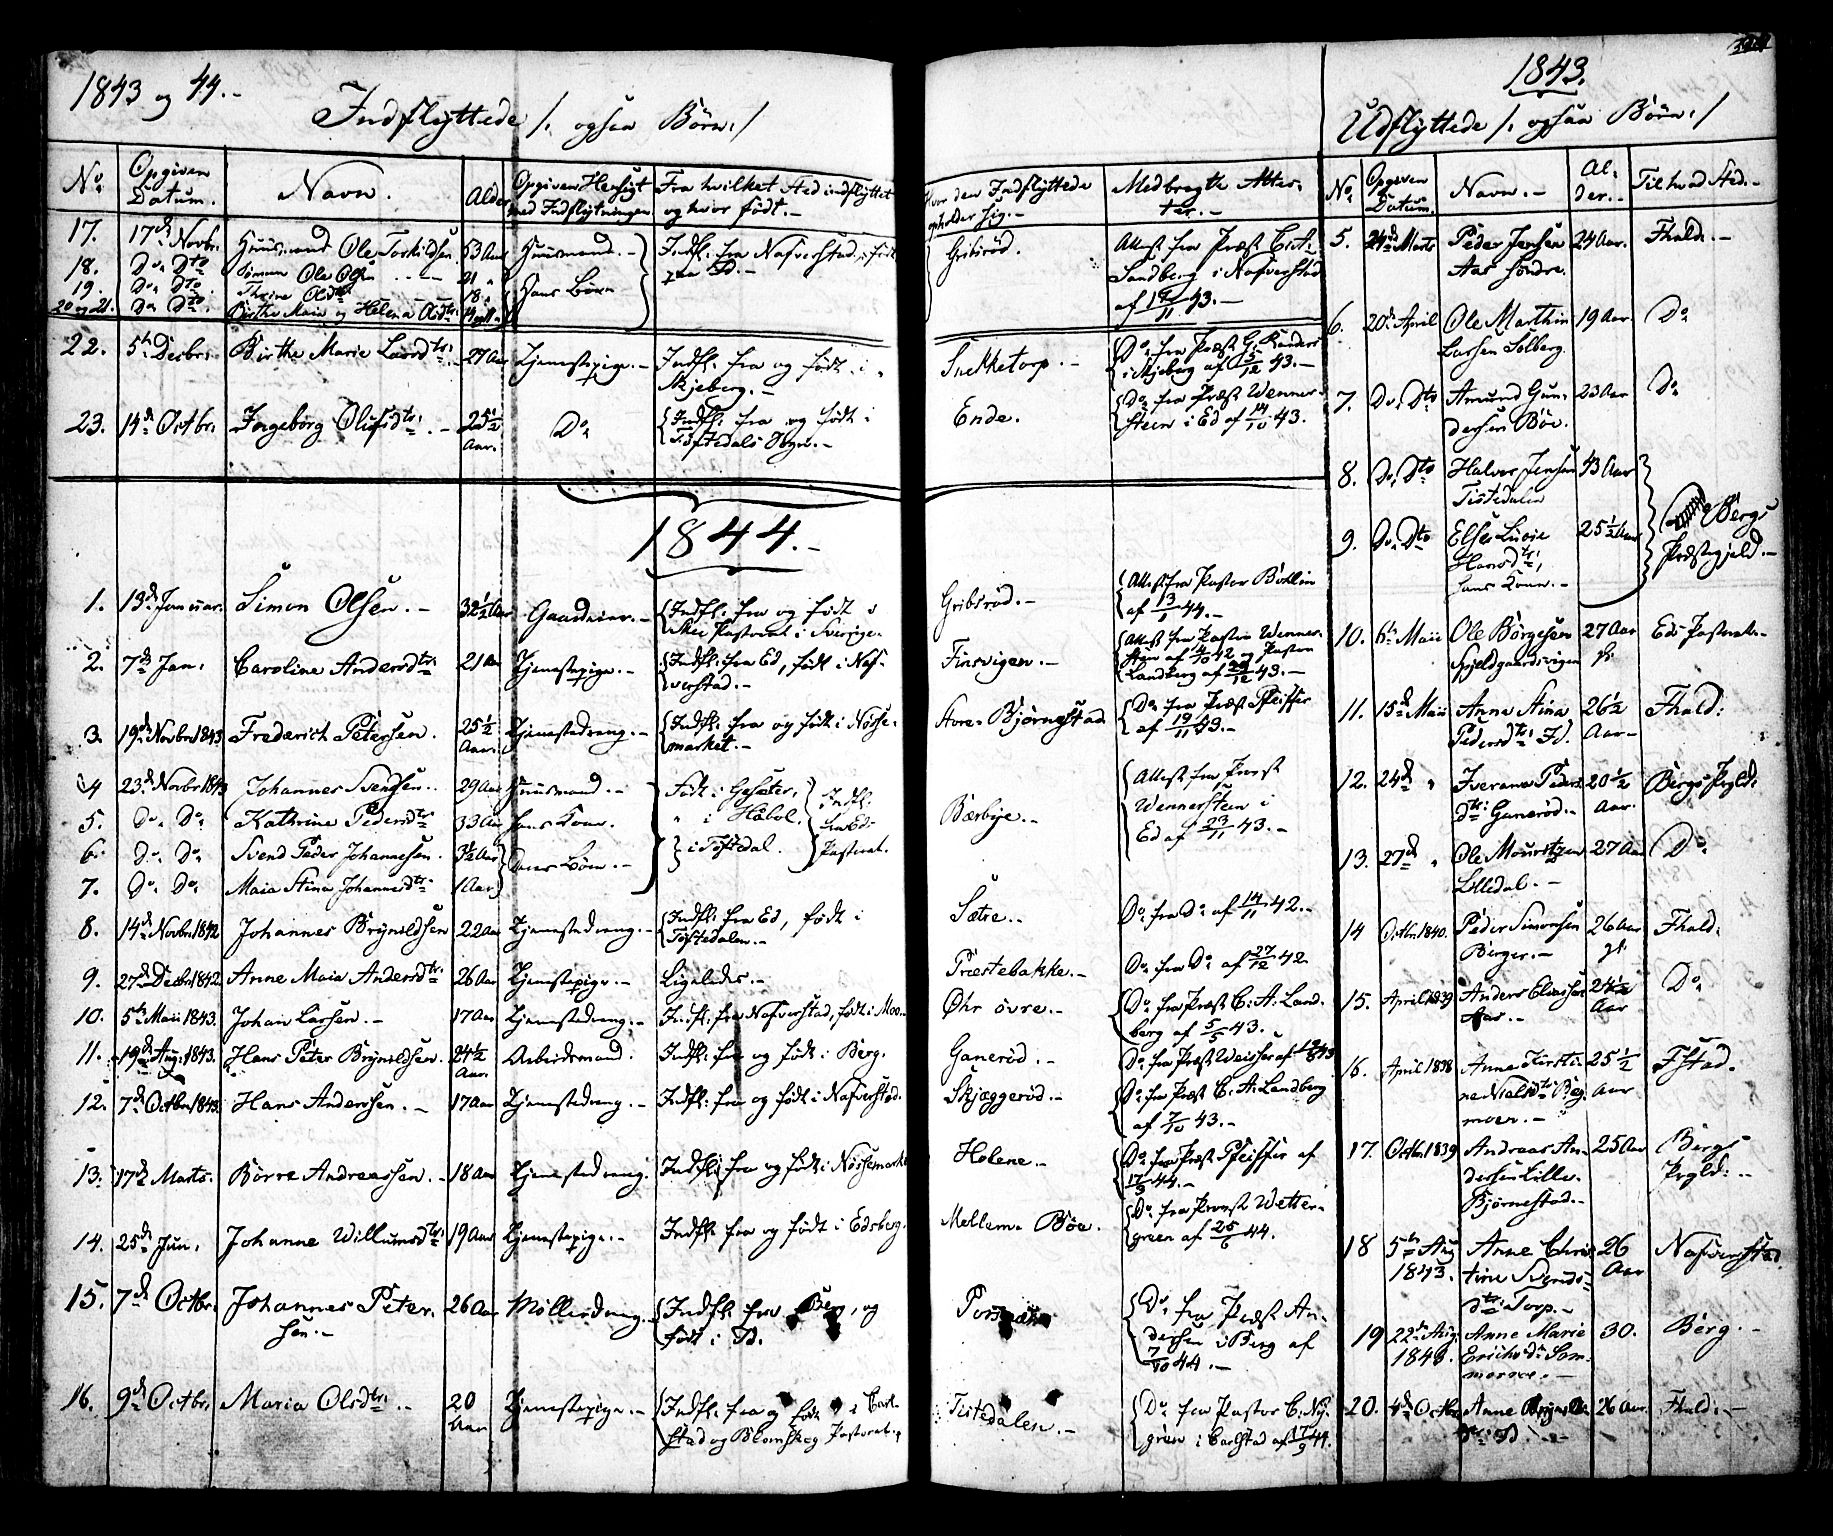 1843 og 44.-
Indflyttede /: ogsaa Børn :/
No.
Opgiven Datum.
Navn.
Alder
Opgiven Hensigt med Indflytningen
Fra hvilket Sted indflyttet og hvor født.-
Hvor den Indflyttede opholder sig.-
Medbragte Attester.-
17. 17de Novbr. Huusmand Ole Torkildsen 53 Aar Huusmand.- Indfl: fra Nafverstad, født Gribsröd. Attest fra Præst C: A:
18. Do Dto Simon Ole Olsen - - 21 " Hans Børn paa Ed.- Landberg i Nafverstad
19. Do Dto Thrine Olsdtr 18 " af 11 43.-
20 og 21. Do Dto Birthe Maria og Helena Olsdtr:
22. 5te Decbr: Birthe Marie Larsdtr: 27 Aar Tjenestepige.- Indfl: fra og født i Skjeberg.- Snekketorp.- Do fra Præst G: Randers i Skjeberg af 5/12 43.-
23. 14de Octbr: Ingeborg Olufsdtr: - 25½ Aar. Do Indfl: fra og født i Töftedals Sogn.- Ende. Do fra Præst Wennersteen i Ed af 14/10 43.
1844.-
1. 13de Januar. Simon Olsen.- 32½ Aar Gaardeier.- Indfl: fra og født i Pastorat i Sverige. Gribsröd.- Attest fra Pastor Bohlin af 13/1 44.-
2. 7de Jan: Caroline Andersdtr 21 Aar Tjenestepige.- Indfl: fra Ed, født i Nafverstad.- Finsvigen.- Attest fra Pastor Wennersteen af 4/10 42 og Pastor Landberg af 29/12 43.-
3. 19de Novbr 1843 Frederich Petersen. 25½ Aar. Tjenestedreng.- Indfl: fra og født i Nössemarket.- Store-Bjørnestad Do fra Præst Pfeiffer af 19/11 43.-
4 23de Novbr 1843 Johannes Svendsen.. 29 Aar Huusmand.- Født i Gesæter, Indfl: fra Eds Pastorat. Bærbye.- Attest fra Præst Wennersteen i Ed af 23/11 43.-
5. Do Do Kathrine Pedersdtr 33 Aar Hans Kone. " i Håbol,
6. Do Do Svend Peder Johannesen. 3½ Aar Deres Børn.- i Töftedal.
7. Do Do Maia Stina Johannesdtr 1 Aar
8. 14de Novbr 1842 Johannes Brynildsen 22 Aar Tjenestedreng.- Indfl: fra Ed, født i Töftedalen.- Sætre.- Do fra Do af 14/11 42.-
9. 27de Decbr 1842. Anne Maia Andersdtr 26 Aar Tjenestepige.- Ligeledes.- Præstebakke.- Do fra Do af 27/12 42
10. 5te Maii 1843. Johan Larsen.- 17 Aar Tjenestedreng.- Indfl: fra Nafverstad, født i Moo- Øhr övre.- Do fra Præst C: A: Landberg af 5/5 43.
11. 19de Aug: 1843. Hans Peter Brynildsen. 24½ Aar. Arbeidsmand. Indfl: fra og født i Berg. Ganerød.- Do fra Præst
12. 7de Octbr 1843. Hans Anderssen.- 17 Aar Tjenestedreng.- Indfl: fra og født i Nafverstad. Skjæggerød.- Do fra Præst C: A: Landberg af 7/10 43.-
13. 17de Marts. Börre Andreassen.- 18 Aar Tjenestedreng. Indfl: fra og født i Nössemarket Holene.- Do fra Præst Pfeiffer af 17/3 44.-
14. 25de Jun: Johanne Willumsdtr: 19 Aar Tjenestepige.- Indfl: fra og født i Edsberg. Mellem Böe. Do fra Præst Wettergreen af 25/6 44.
15. 7de Octbr: Johannes Petersen.- 26 Aar Møllerdreng.- Indfl: fra Berg, og født i Do. Do fra Præst Anderssen i Berg af 7/10 44.-
16. 9de Octbr: Maria Olsdtr: - 20 Aar Tjenestepige.- Indfl: fra og født i Carlstad og Blomskog Pastorat. Tistedalen.- Do fra Pastor C: Nygren i Carlstad af 17/9 44.
1843.
Udflyttede /: ogsaa Børn :/
No Opgiven Datum. Navn.- Alder.- Til hvad Sted.-
5. 24de Marts Peder Jensen Aas søndre. 24 Aar. Fhald.-
6. 20de April Ole Marthin Larsen Solberg. 19 Aar. Do
7. Do Dto Amund Gundersen Böe. 23 Aar Do
8. Do Dto Halvor Jensen Tistedalen 43 Aar Bergs Præstegjeld.-
9. Do Dto Else Lovise Hansdtr, hans Kone.- 25½ Aar
10. 6te Maii Ole Börgesen Spjeldgaardsvigen 27 Aar Eds Pastorat.-
11. 15de Maii Anna Stina Pedersdtr: Fd. 26½ Aar- Fhald:
12. 24de " Iverane Pedersdtr: Ganerød.- 20½ Aar. Bergs Prgld:
13. 27de " Ole Mouritzen Lilledal.- 27 Aar Do
14 Octbr 1840. Peder Simonsen Berger.- 26 Aar Fhald:
15. April 1839 Anders Eliassen Aas.- 24½ Aar Do
16. April 1838 Anna Kerstine Nielsdtr moen.- 25½ Aar Fstad.
17. Octbr 1839 Andreas Andersen Lille-Bjørnestad.- 25 Aar Bergs Prgld:-
18 5te Aug 1843. Anne Christine Svendsdtr: Torp.- 26 Aar Nafverstad.
19 22de Aug: Anne Marie 30. Berg.-
20. 4de Octbr Anne 26 Aar. Fhald:-